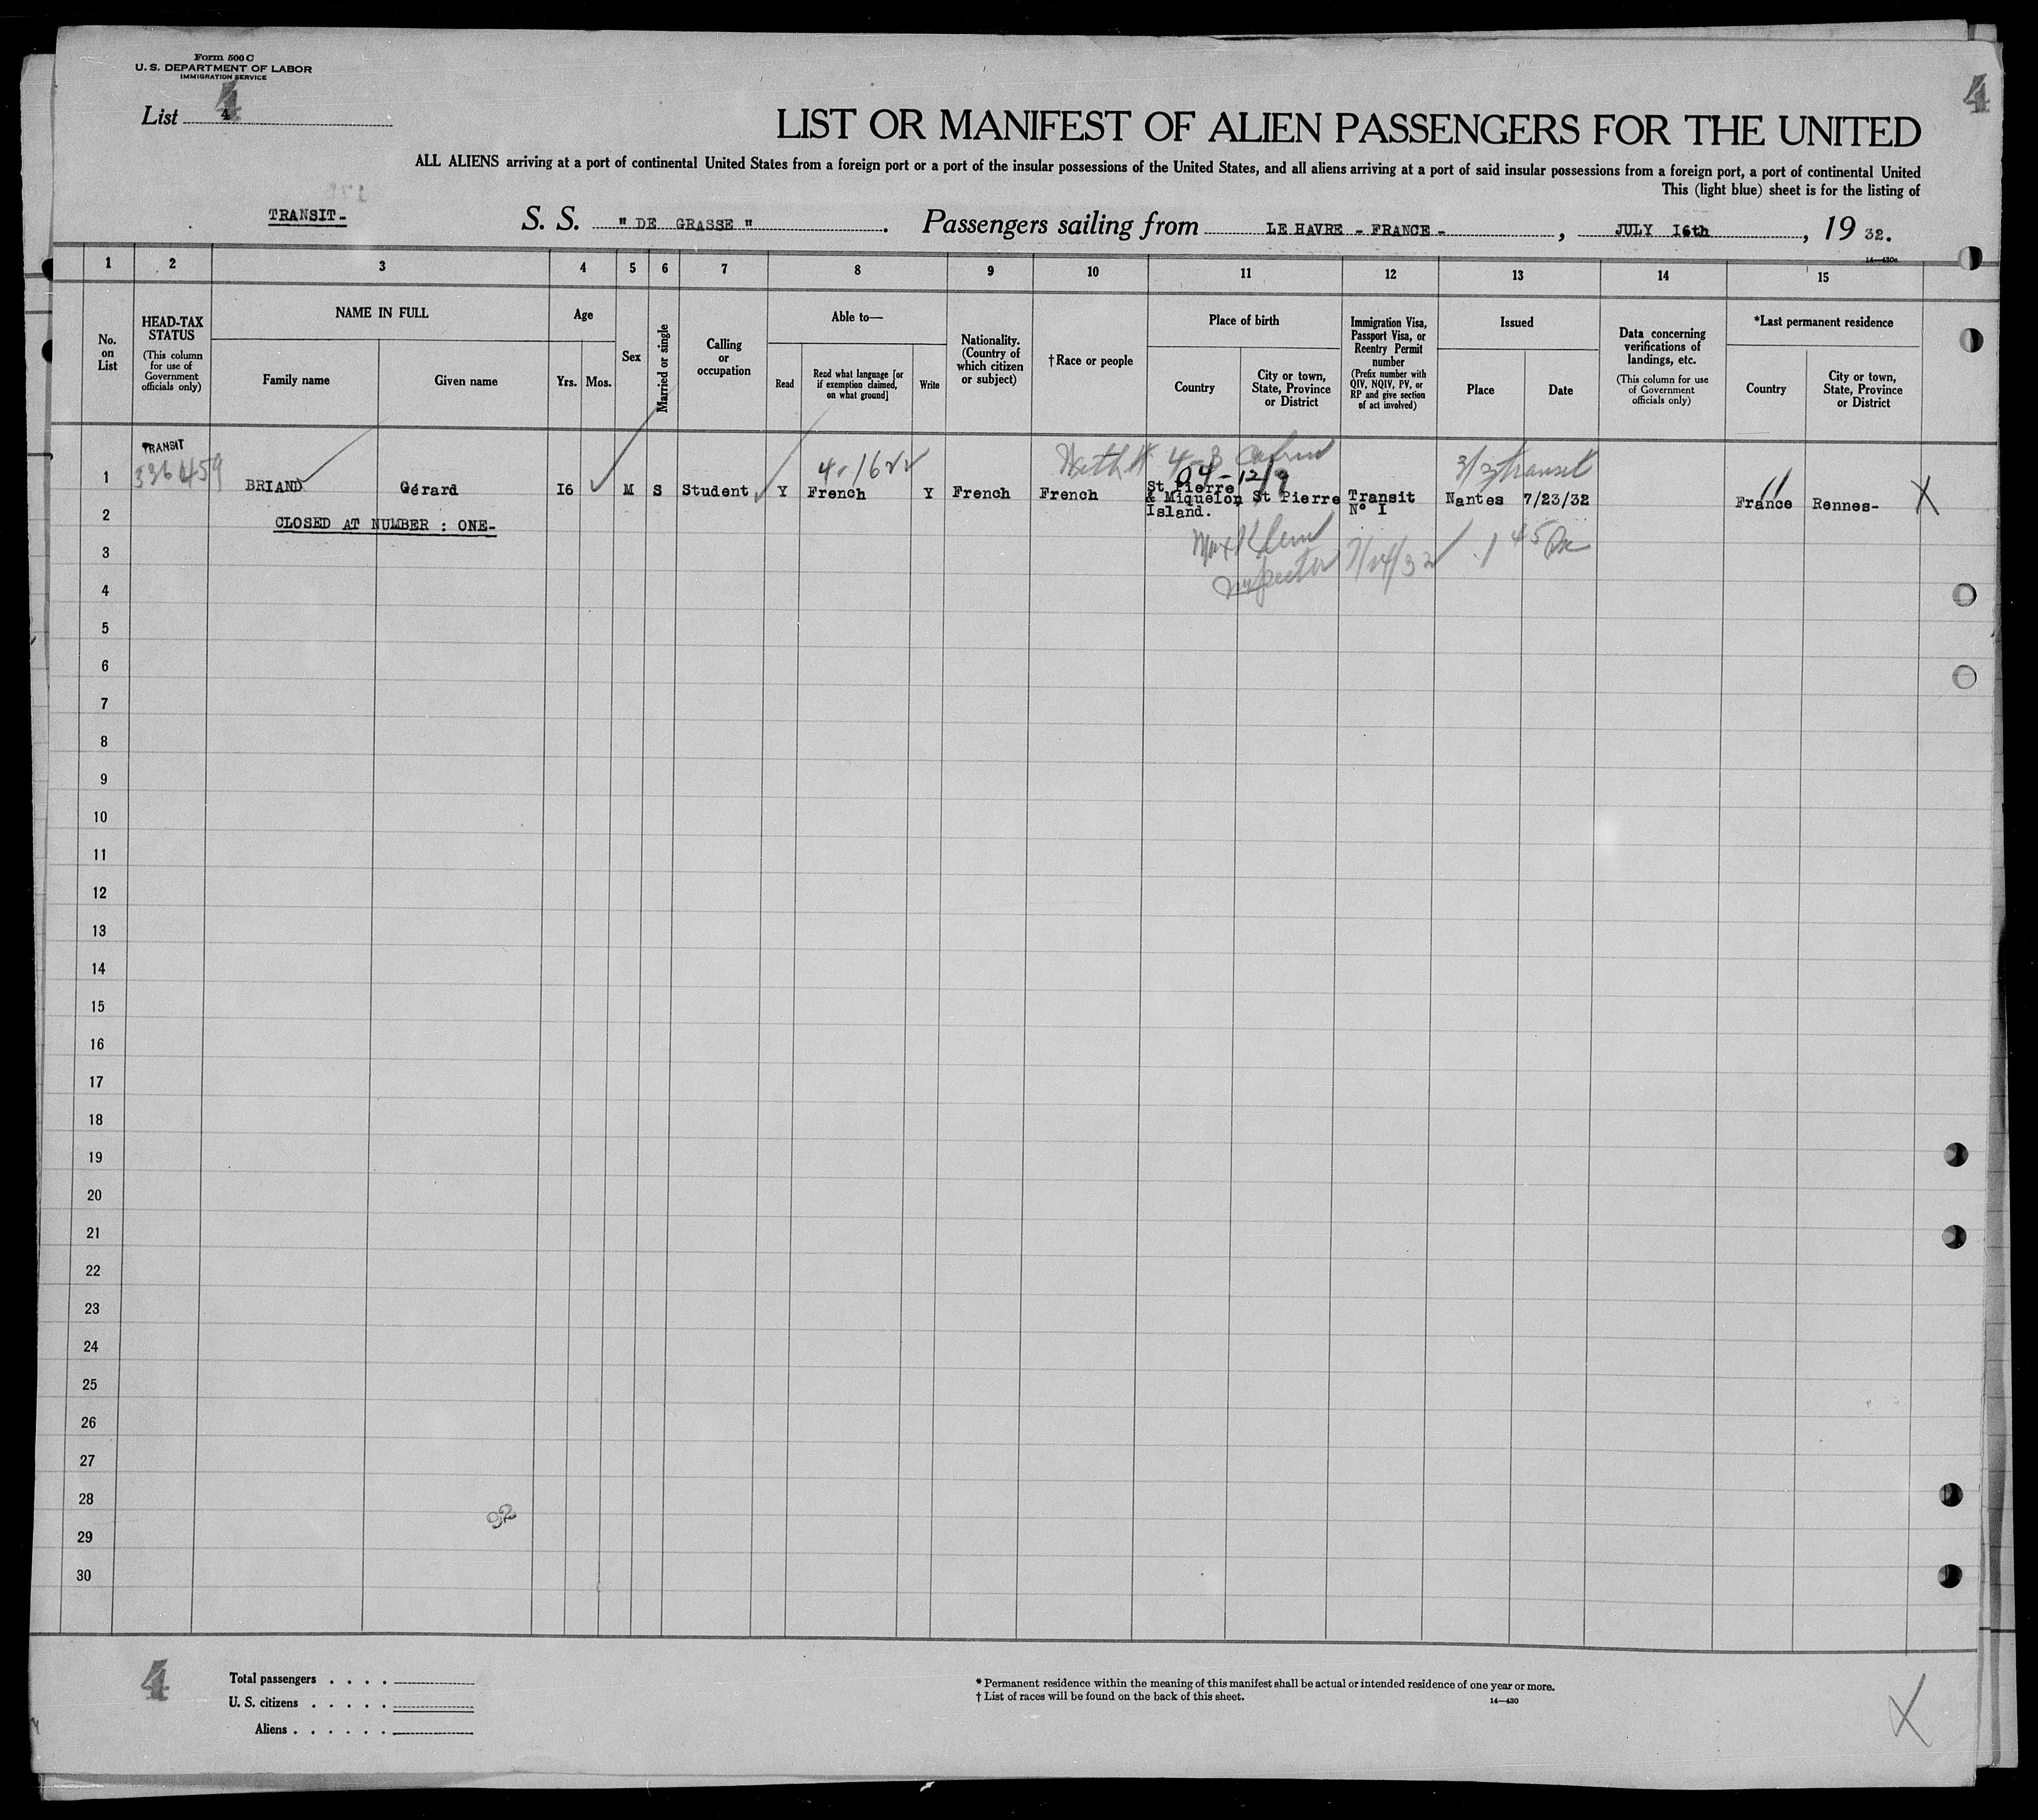 Form 500 C
U. S. DEPARTMENT OF LABOR
IMMIGRATION SERVICE
4
List 4
LIST OR MANIFEST OF ALIEN PASSENGERS FOR THE UNITED
ALL ALIENS arriving at a port of continental United States from a foreign port or a port of the insular possessions of the United States, and all aliens arriving at a port of said insular possessions from a foreign port, a port of continental United
This (light blue) sheet is for the listing of
TRANSIT- S. S. " DE GRASSE ". Passengers sailing from LE HAVRE - FRANCE -, JULY I6th, 19 32.
14—430c
1 2 3 4 5 6 7 8 9 10 11 12 13 14 15
No. on List
HEAD-TAX STATUS (This column for use of Government officials only)
NAME IN FULL
Family name Given name
Age
Yrs. Mos.
Sex
Married or single
Calling or occupation
Able to—
Read Read what language [or if exemption claimed, on what ground] Write
Nationality. (Country of which citizen or subject)
†Race or people
Place of birth
Country City or town, State, Province or District
Immigration Visa, Passport Visa, or Reentry Permit number (Prefix number with QIV, NQIV, PV, or RP and give section of act involved)
Issued
Place Date
Data concerning verifications of landings, etc. (This column for use of Government officials only)
*Last permanent residence
Country City or town, State, Province or District
TRANSIT
336459
04-12/9
3/2 transit
1 BRIAND Gérard I6 M S Student Y French Y French French St Pierre & Miquelon Island. St Pierre Transit N° I Nantes 7/23/32 France Rennes- X
2 CLOSED AT NUMBER : ONE-
3
Inspector 7/24/32 1 45 Pm
4
5
6
7
8
9
10
11
12
13
14
15
16
17
18
19
20
21
22
23
24
25
26
27
28
29
30
4
Total passengers . . . .
U. S. citizens . . . . .
Aliens . . . . . .
* Permanent residence within the meaning of this manifest shall be actual or intended residence of one year or more.
† List of races will be found on the back of this sheet.
14—430
X